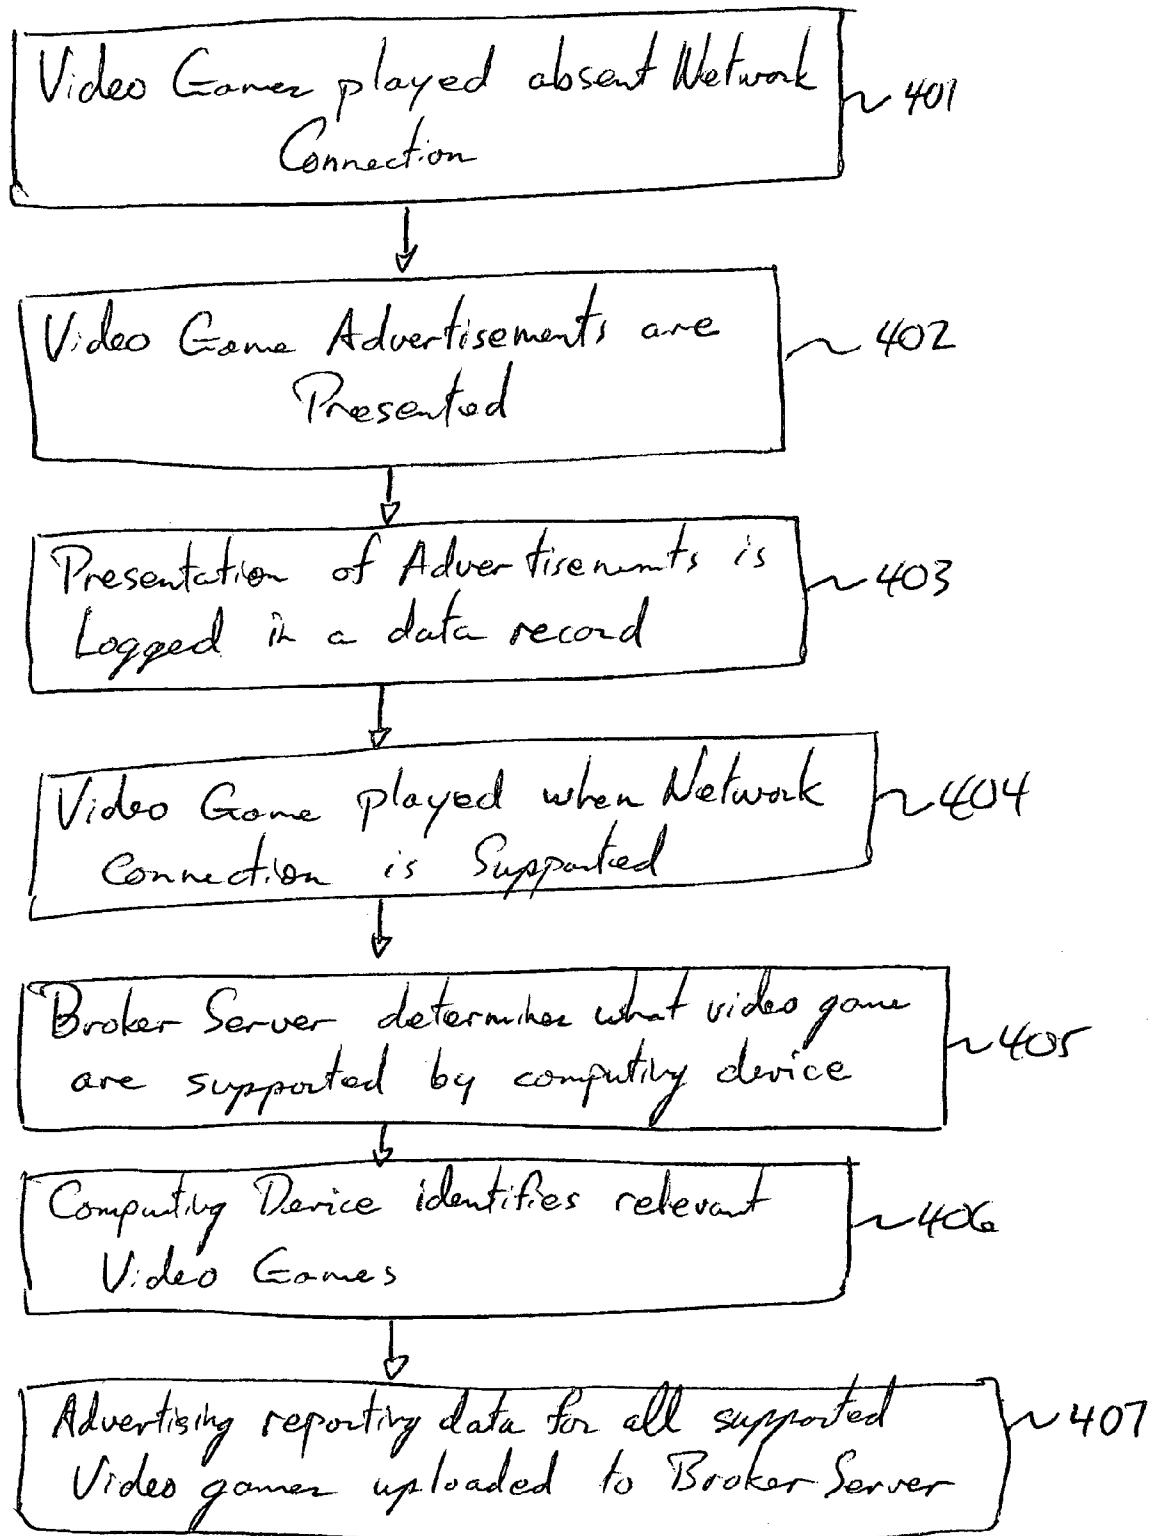 Video Games played absent Network
Connection
401
Video Game Advertisements are
Presented
402
Presentation of Advertisements is
Logged in a data record
403
Video Game played when Network
Connection is Supported
404
Broker Server determines what video game
are supported by computing device
405
Computing Device identifies relevant
Video Games
406
Advertising reporting data for all supported
Video games uploaded to Broker Server
407